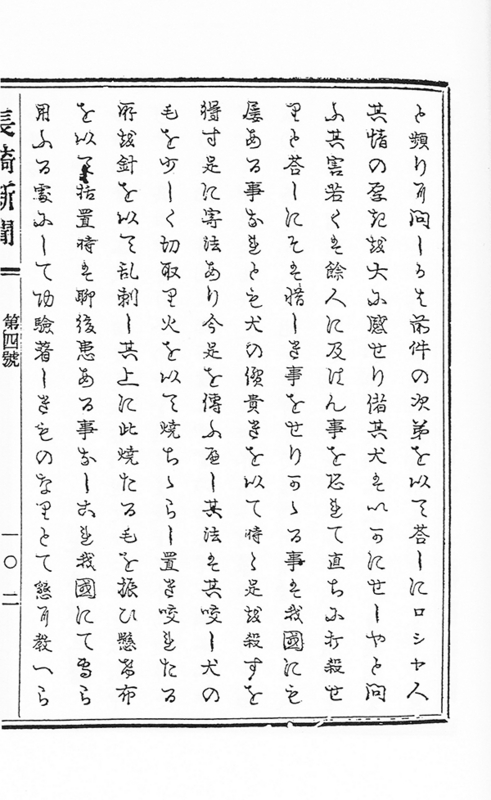 と頻りに問しかは前件の次第を以て答しにロシヤ人
其情の厚きを大に感せり偖其犬はいかにせしやと問
ふ其害若くは餘人に及はん事を恐れて直ちに打殺せ
りと答しにそは惜しき事をせりかゝる事は我國にも
屢ある事なれとも犬の價貴きを以て時々是を殺すを
得す是に寄法あり今是を傳ふへし其法は其咬し犬の
毛を少しく切取り火を以て焼ちらし置き咬れたる
所を針を以て乱刺し其上に此焼たる毛を振ひ懸け布
を以て括置時は聊後患ある事なしこれ我國にて専ら
用ふる處にして功驗著しきものなりとて懇に教へら
長崎新聞
第四號
一〇二